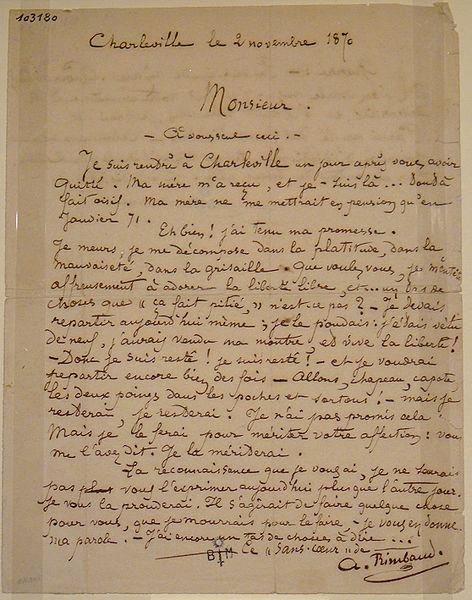 103180
Charleville le 2 novembre 1870
Monsieur.
— A vous seul ceci. —
Je suis rendu à Charleville un jour après vous avoir
quitté. Ma mère m'a reçu, et je - suis là... tout à
fait oisif. Ma mère ne me mettrait en pension qu'en
Janvier 71.
Eh bien ! j'ai tenu ma promesse.
Je meurs, je me décompose dans la platitude, dans la
mauvaiseté, dans la grisaille. Que voulez-vous, je m'entête
affreusement à adorer la liberté libre, et... un tas de
choses que " ça fait pitié, " n'est-ce pas ? — Je devais
repartir aujourd'hui même ; je le pouvais : j'étais vêtu
de neuf, j'aurais vendu ma montre, et vive la liberté !
— Donc je suis resté ! je suis resté ! — et je voudrai
repartir encore bien des fois — Allons, chapeau, capote,
les deux poings dans les poches et sortons ! — mais je
resterai, je resterai. Je n'ai pas promis cela.
Mais je le ferai pour mériter votre affection : vous
me l'avez dit. Je la mériterai.
La reconnaissance que je vous ai, je ne saurais
pas vous l'exprimer aujourd'hui plus que l'autre jour.
Je vous la prouverai. Il s'agirait de faire quelque chose
pour vous, que je mourrais pour le faire, — je vous en donne
ma parole. — J'ai encore un tas de choses à dire....
Ce " sans-cœur " de
A. Rimbaud.
BM